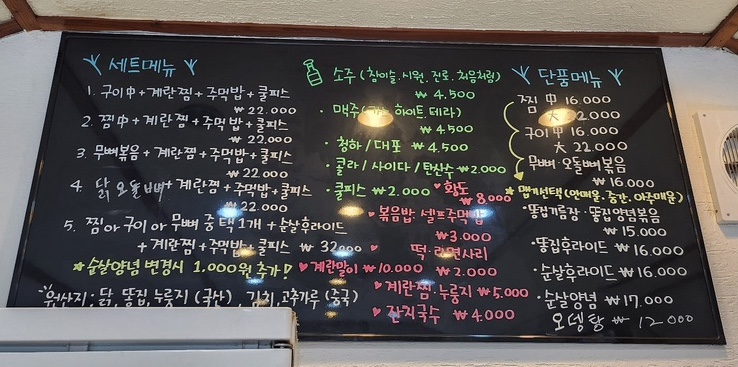 세트메뉴
1. 구이中+계란찜+주먹밥+쿨피스
₩22.000
2. 찜中+계란찜+주먹밥+쿨피스
₩22.000
3. 무뼈볶음+계란찜+주먹밥+쿨피스
₩22.000
4. 닭오돌뼈+계란찜+주먹밥+쿨피스
₩22.000
5. 찜 or 구이 or 무뼈 중 택1개+순살후라이드
+계란찜+주먹밥+쿨피스 ₩32000
★순살양념 변경시 1.000원 추가!
원산지: 닭, 똥집, 누룽지 (국산), 김치, 고추가루 (중국)
소주 (참이슬.시원.진로.처음처럼)
₩4.500
· 맥주 (하이트.테라)
₩4.500
· 청하/대포 ₩4.500
· 콜라/사이다/탄산수 ₩2.000
· 쿨피스 ₩2.000
♥황도
₩8.000
♥볶음밥.셀프주먹밥
₩3.000
♥떡.라면사리
₩2.000
♥계란말이 ₩10.000
♥계란찜·누룽지 ₩5.000
♥잔치국수 ₩4.000
단품메뉴
찜 中 16.000
大 2.000
구이中 16.000
大 22.000
무뼈·오돌뼈볶음
₩16.000
★맵기선택 (안매움·중간·아주매움)
·똥집기름장·똥집양념볶음
₩15.000
·똥집후라이드 ₩16.000
·순살후라이드 ₩16.000
·순살양념 ₩17.000
오뎅탕 ₩12000